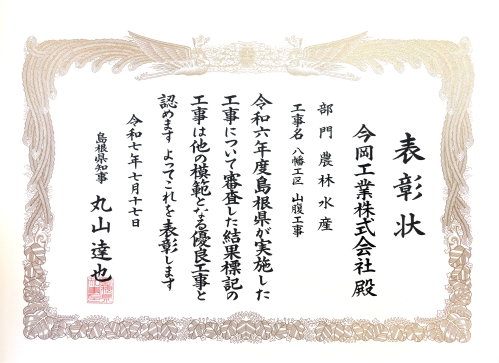 表彰状
今岡工業株式会社 殿
部門 農林水産
工事名 八幡工区 山腹工事
令和六年度島根県が実施した
工事について審査した結果標記の
工事は他の模範となる優良工事と
認めます よってこれを表彰します
令和七年七月十七日
島根県知事 丸山達也